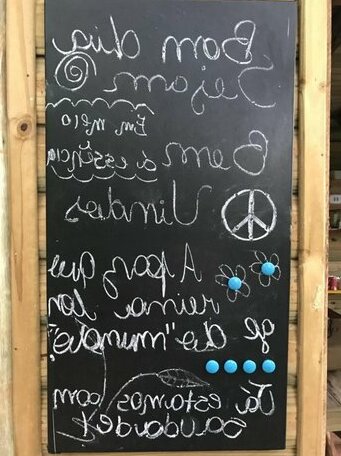 Bom dia
Sejam
Em meio
Bem
a essência
Vindas
A paz que
reina lon
ge do "mundo"
Já estamos com
saudades